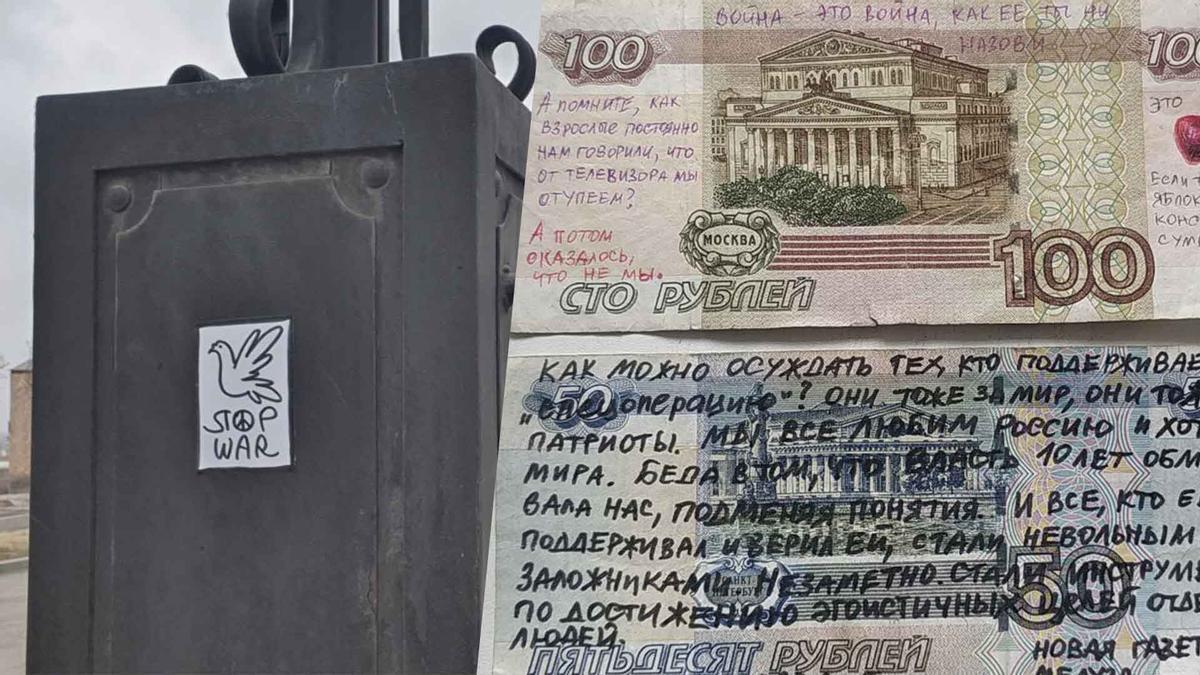 STOP
WAR
ВОЙНА – ЭТО ВОЙНА, КАК ЕЕ ТЫ НИ
НАЗОВИ
100
100
А ПОМНИТЕ, КАК
ВЗРОСЛЫЕ ПОСТОЯННО
НАМ ГОВОРИЛИ, ЧТО
ОТ ТЕЛЕВИЗОРА МЫ
ОТУПЕЕМ?
А ПОТОМ
ОКАЗАЛОСЬ,
ЧТО НЕ МЫ.
ЭТО
ЕСЛИ
ЯБЛОК
КОНС
СУМ
МОСКВА
100
СТО РУБЛЕЙ
КАК МОЖНО ОСУЖДАТЬ ТЕХ, КТО ПОДДЕРЖИВАЕ
"СПЕЦОПЕРАЦИЮ"? ОНИ ТОЖЕ ЗА МИР, ОНИ ТО
ПАТРИОТЫ. МЫ ВСЕ ЛЮБИМ РОССИЮ И ХОТ
МИРА. БЕДА В ТОМ, ЧТО ВЛАСТЬ 10 ЛЕТ ОБМ
ВАЛА НАС, ПОДМЕНЯЯ ПОНЯТИЯ. И ВСЕ, КТО Е
ПОДДЕРЖИВАЛ И ВЕРИЛ ЕЙ, СТАЛИ НЕВОЛЬНЫМ
ЗАЛОЖНИКАМИ. НЕЗАМЕТНО СТАЛИ ИНСТРУМЕ
ПО ДОСТИЖЕНИЮ ЭГОИСТИЧНЫХ ЦЕЛЕЙ ОТД
ЛЮДЕЙ.
50
САНКТ-
ПЕТЕРБУРГ
50
ПЯТЬДЕСЯТ РУБЛЕЙ
НОВАЯ ГАЗЕТ